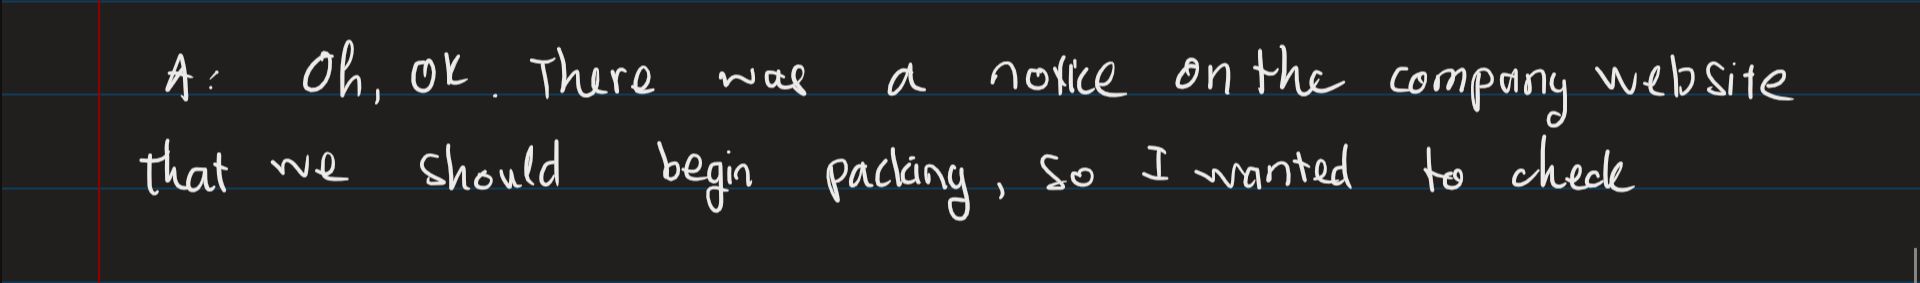 A: Oh, OK. There was a notice on the company website
that we should begin packing, so I wanted to check